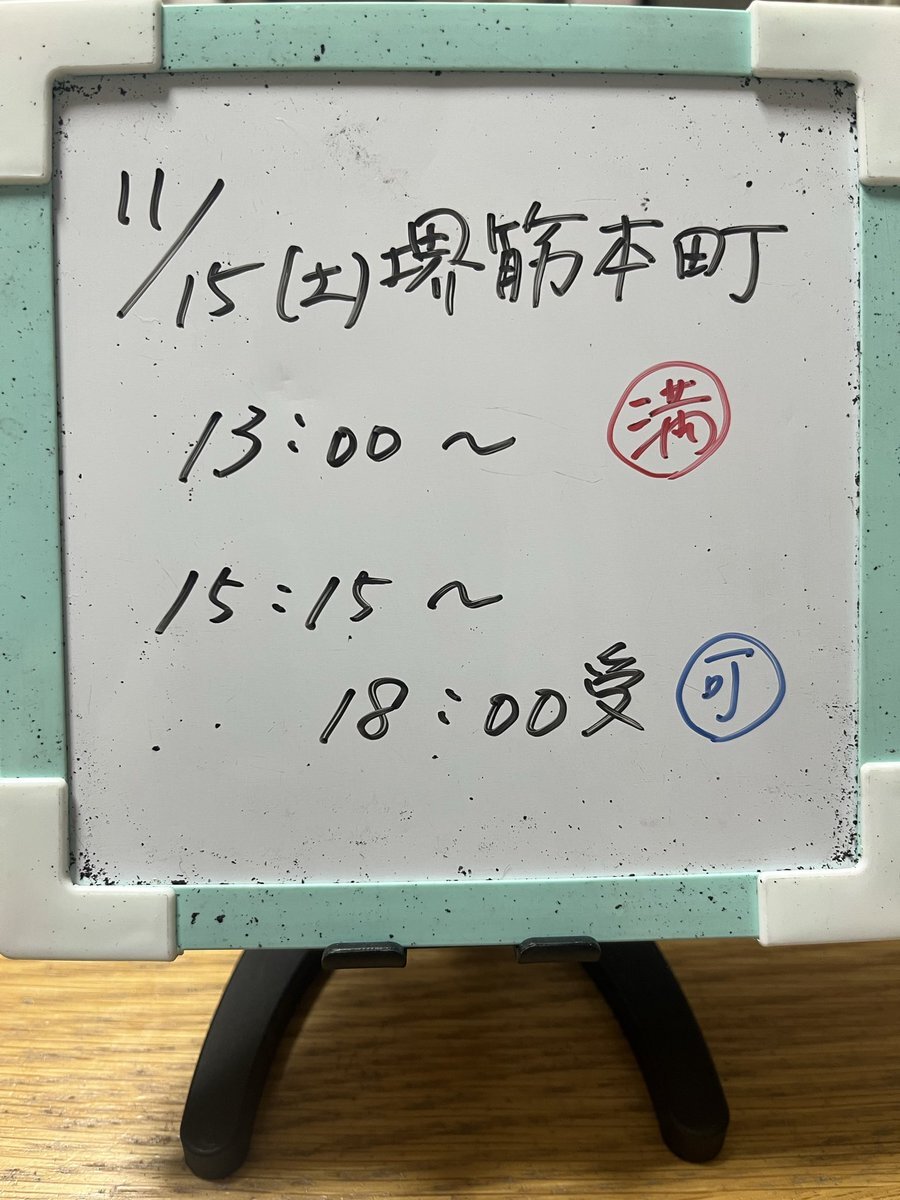 11/15(土)堺筋本町
13:00～ 満
15:15～
18:00受 可